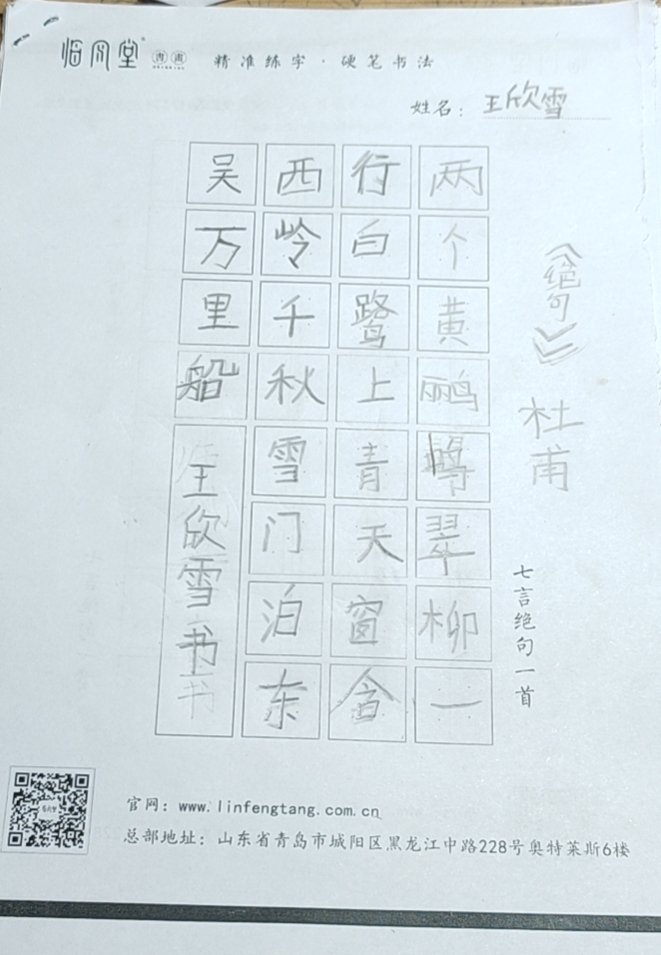 临风堂 青肃 精准练字·硬笔书法
姓名：王欣雪
《绝句》 杜甫
七言绝句一首
两个黄鹂翠柳一
行白鹭上青天窗含
西岭千秋雪门泊东
吴万里船
王欣雪书
官网：www.linfengtang.com.cn
总部地址：山东省青岛市城阳区黑龙江中路228号奥特莱斯6楼